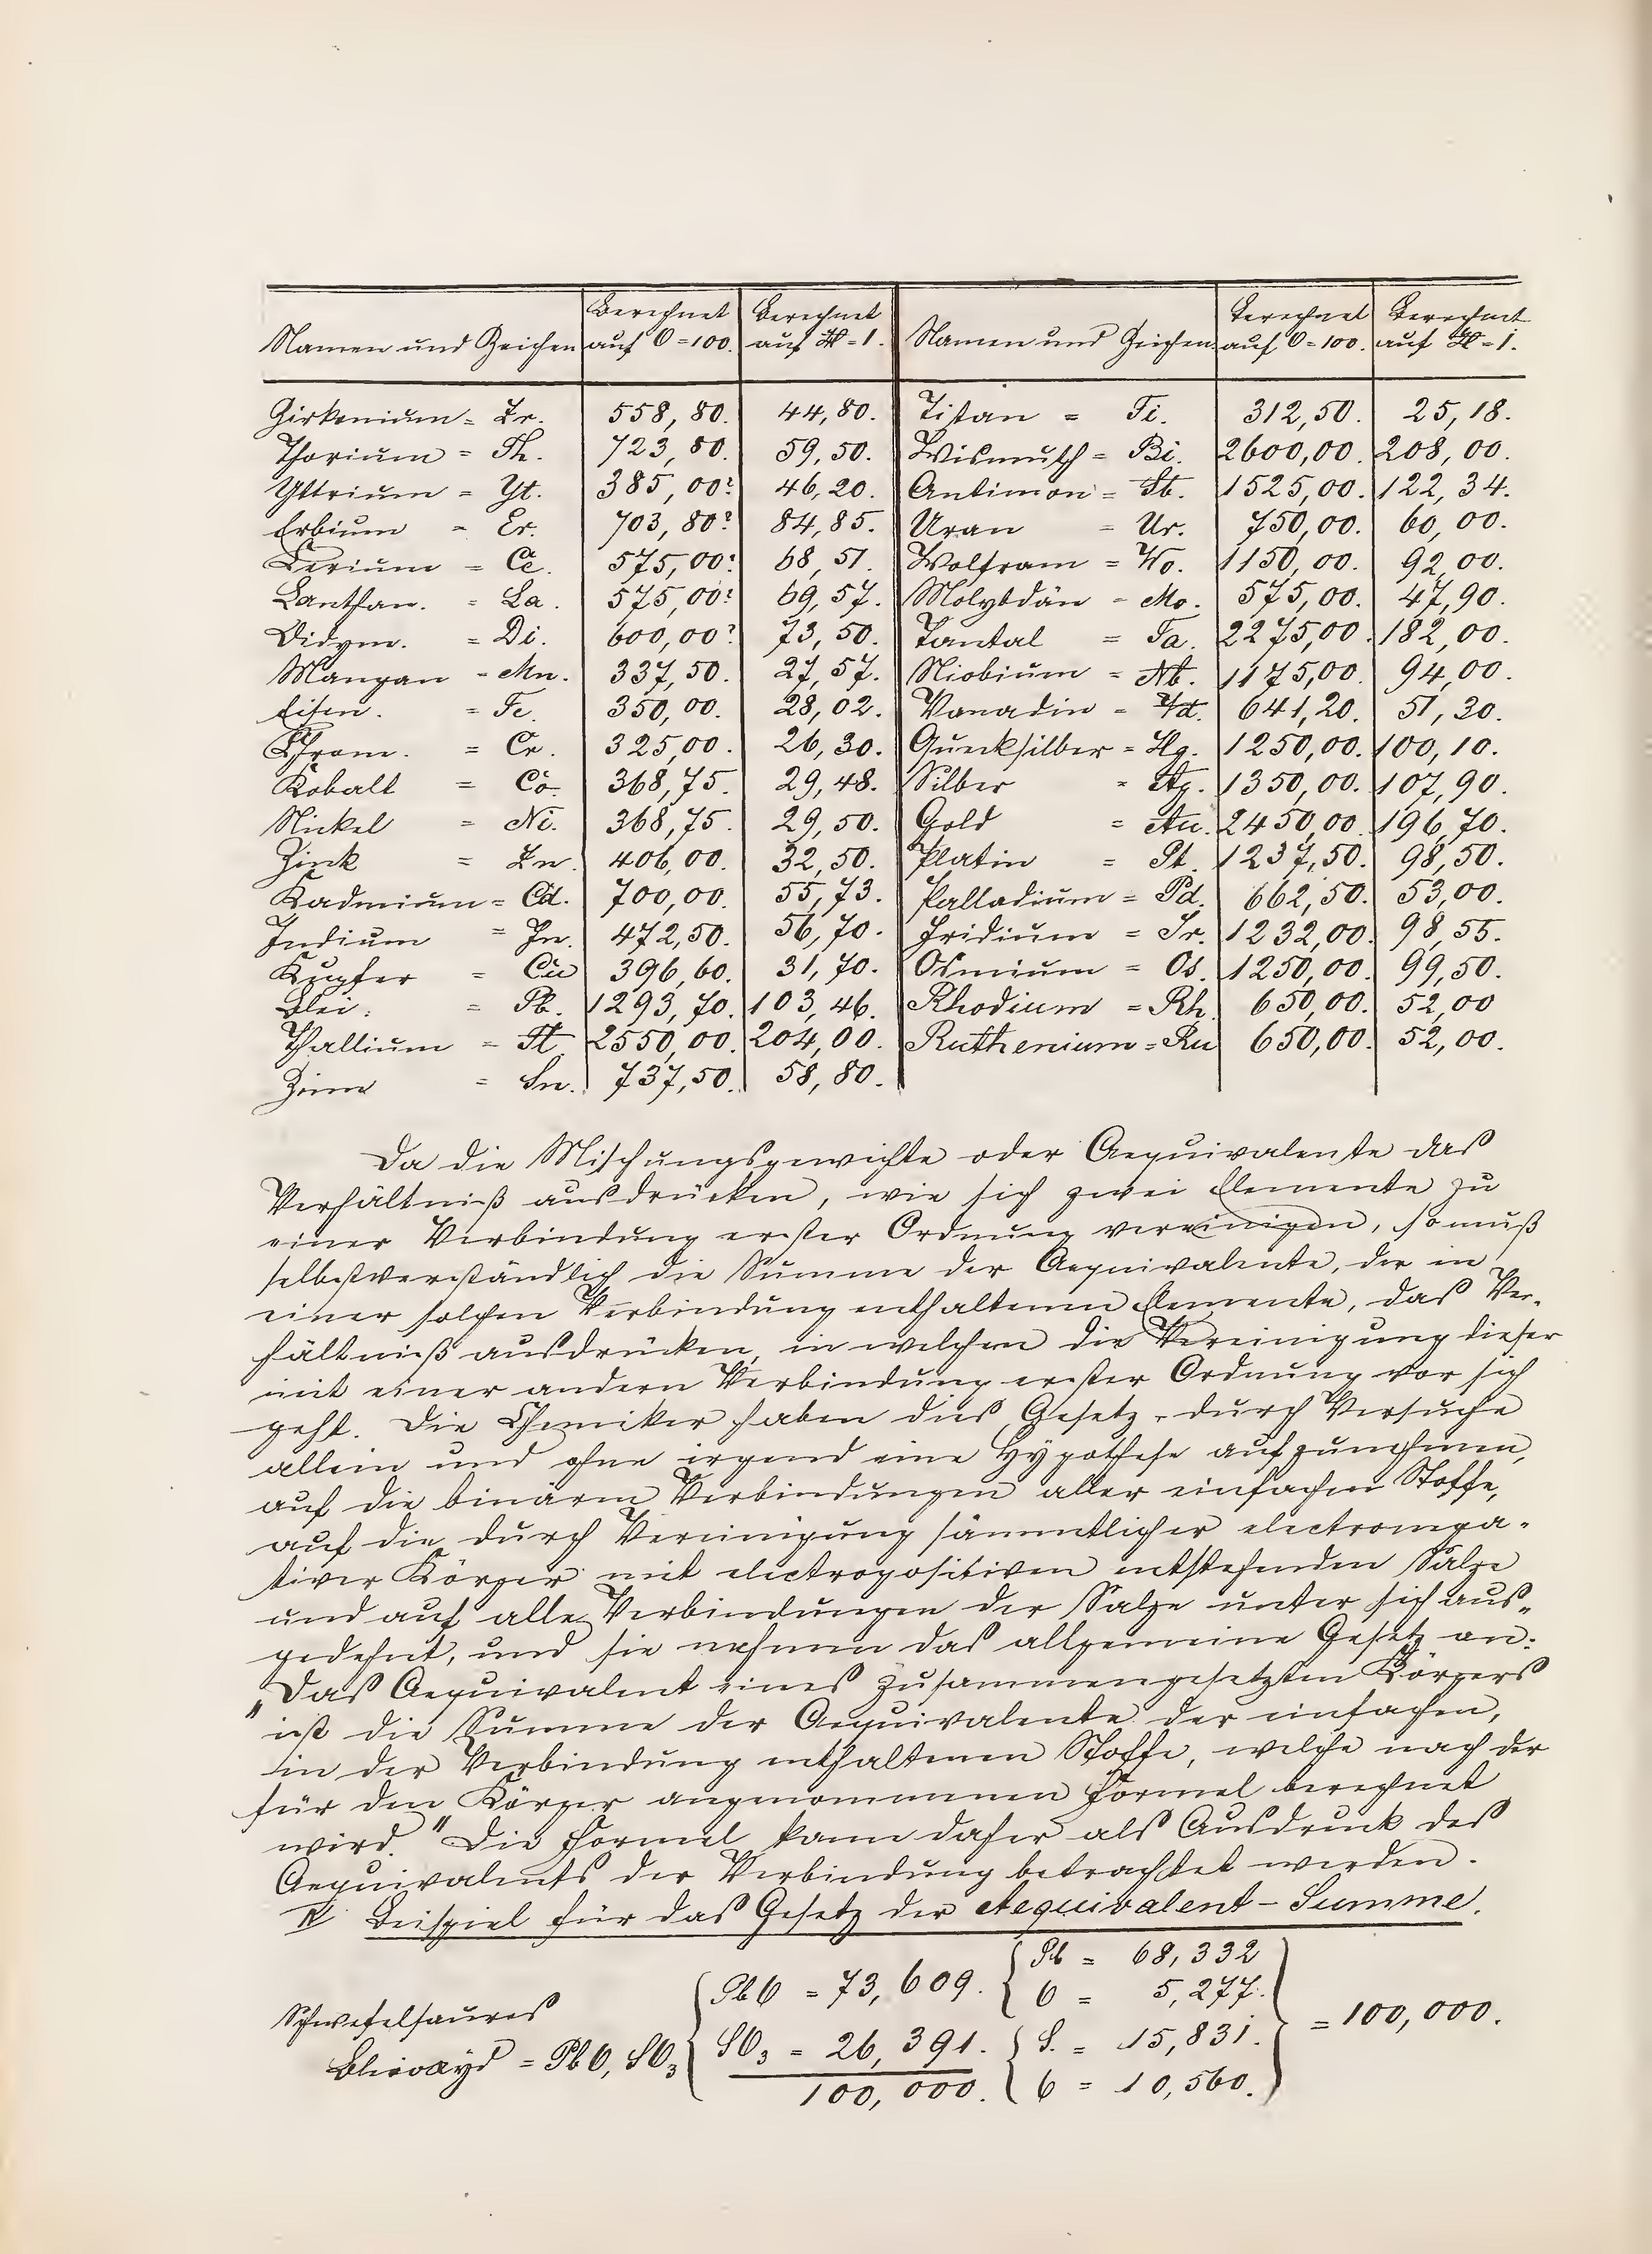 Namen und Zeichen Berechnet auf O=100. Berechnet auf H=1. Namen und Zeichen Berechnet auf O=100. Berechnet auf H=1.
Zirkonium = Zr. 558,80. 44,80. Titan = Ti. 312,50. 25,18.
Thorium = Th. 723,80. 59,50. Wismuth = Bi. 2600,00. 208,00.
Yttrium = Yt. 385,00? 46,20. Antimon = Sb. 1525,00. 122,34.
Erbium = Er. 703,80? 84,85. Uran = Ur. 750,00. 60,00.
Cerium = Ce. 575,00? 68,51. Wolfram = Wo. 1150,00. 92,00.
Lanthan. = La. 575,00? 69,57. Molybdän = Mo. 575,00. 47,90.
Didym. = Di. 600,00? 73,50. Tantal = Ta. 2275,00. 182,00.
Mangan = Mn. 337,50. 27,57. Niobium = Nb. 1175,00. 94,00.
Eisen. = Fe. 350,00. 28,02. Vanadin = Vd. 641,20. 51,30.
Chrom. = Cr. 325,00. 26,30. Quecksilber = Hg. 1250,00. 100,10.
Kobalt = Co. 368,75. 29,48. Silber = Ag. 1350,00. 107,90.
Nickel = Ni. 368,75. 29,50. Gold = Au. 2450,00. 196,70.
Zink = Zn. 406,00. 32,50. Platin = Pt. 1237,50. 98,50.
Kadmium = Cd. 700,00. 55,73. Palladium = Pd. 662,50. 53,00.
Indium = In. 472,50. 56,70. Iridium = Ir. 1232,00. 98,55.
Kupfer = Cu 396,60. 31,70. Osmium = Os. 1250,00. 99,50.
Blei. = Pb. 1293,70. 103,46. Rhodium = Rh. 650,00. 52,00
Thallium = Tl. 2550,00. 204,00. Ruthenium = Ru 650,00. 52,00.
Zinn = Sn. 737,50. 58,80.
Da die Mischungsgewichte oder Aequivalente das
Verhältniß ausdrücken, wie sich zwei Elemente zu
einer Verbindung erster Ordnung vereinigen, so muß
selbstverständlich die Summe der Aequivalente, der in
einer solchen Verbindung enthaltenen Elemente, das Ver-
hältniß ausdrücken, in welchem die Vereinigung dieser
mit einer andern Verbindung erster Ordnung vor sich
geht. Die Chemiker haben dies Gesetz, durch Versuche
allein und ohne irgend eine Hypothese aufzunehmen,
auf die binären Verbindungen aller einfachen Stoffe,
auf die durch Vereinigung sämmtlicher electronega-
tiver Körper mit electropositiven entstehenden Salze
und auf alle Verbindungen der Salze unter sich aus-
gedehnt, und sie nehmen das allgemeine Gesetz an:
"Das Aequivalent eines zusammengesetzten Körpers
ist die Summe der Aequivalente der einfachen,
in der Verbindung enthaltenen Stoffe, welche nach der
für den Körper angenommenen Formel berechnet
wird." Die Formel kann daher als Ausdruck des
Aequivalents der Verbindung betrachtet werden.
IV Beispiel für das Gesetz der Aequivalent-Summe.
Schwefelsaures
Bleioxyd = PbO, SO3
PbO = 73,609.
SO3 = 26,391.
100,000.
Pb = 68,332
O = 5,277.
S. = 15,831.
O = 10,560.
= 100,000.